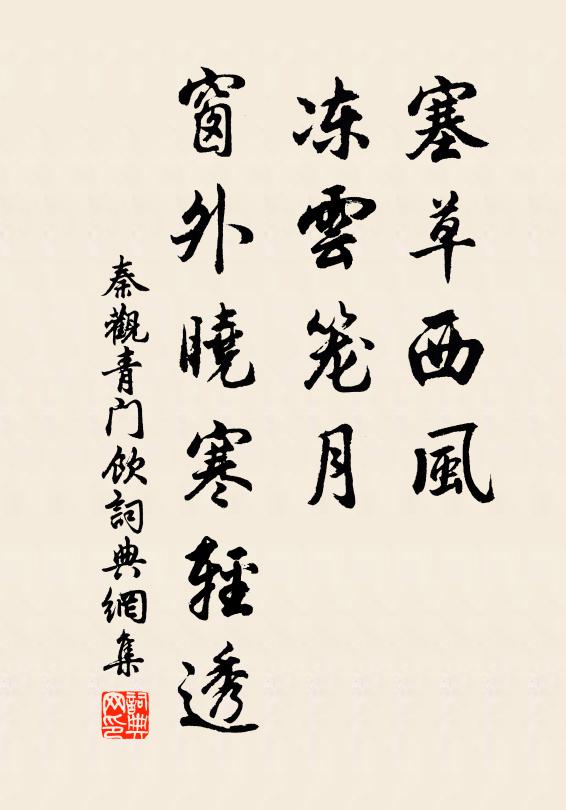 塞草西風
冻雲笼月
窗外曉寒輕透
秦觀青门飲詞典網集
詞典网印